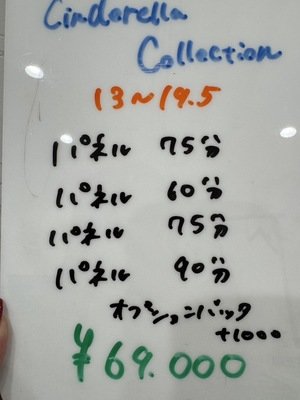 Cindarella
Collection
13~19.5
パネル 75分
パネル 60分
パネル 75分
パネル 90分
オプションバック
+1000
¥69.000